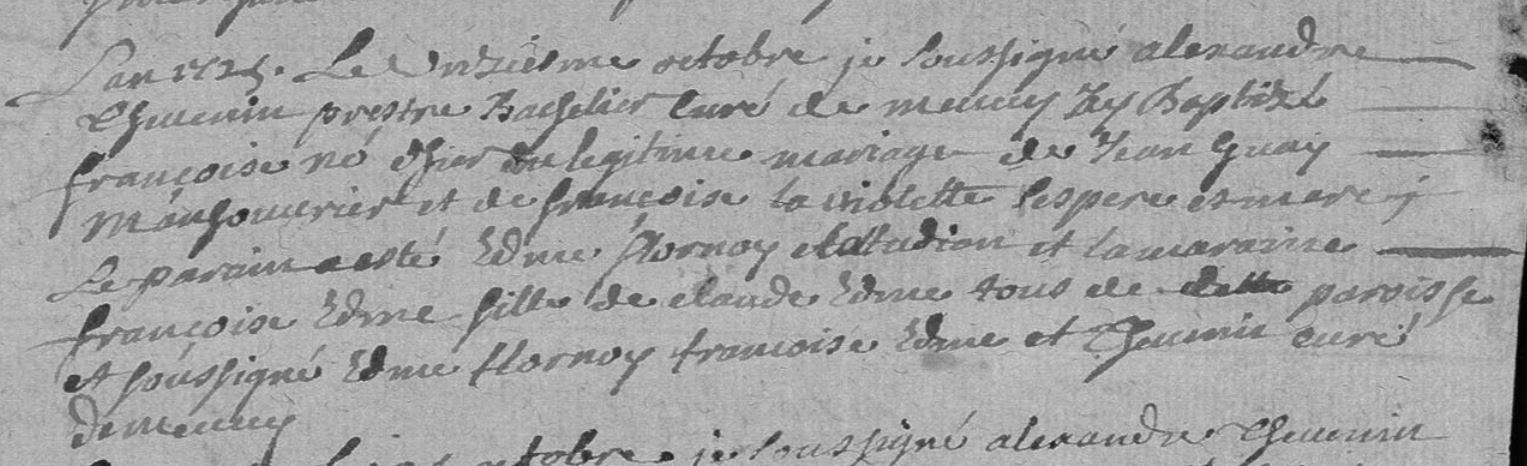 L'an 1725. Le Onziesme octobre je soussigné alexandre
Theuenin prestre Bachelier Curé de meuuy Zey Baptizé
françoise né d'hier du legitime mariage de Jean Guay
manouurier et de françoise la violette ses pere et mere ;
Le parain a esté Edme flornoy et la maraine
françoise Edme fille de claude Edme tous de cette paroisse
et soussigné Edme flornoy francoise Edme et Theuenin curé
de meuuy
octobre je soussigné alexandre Theuenin